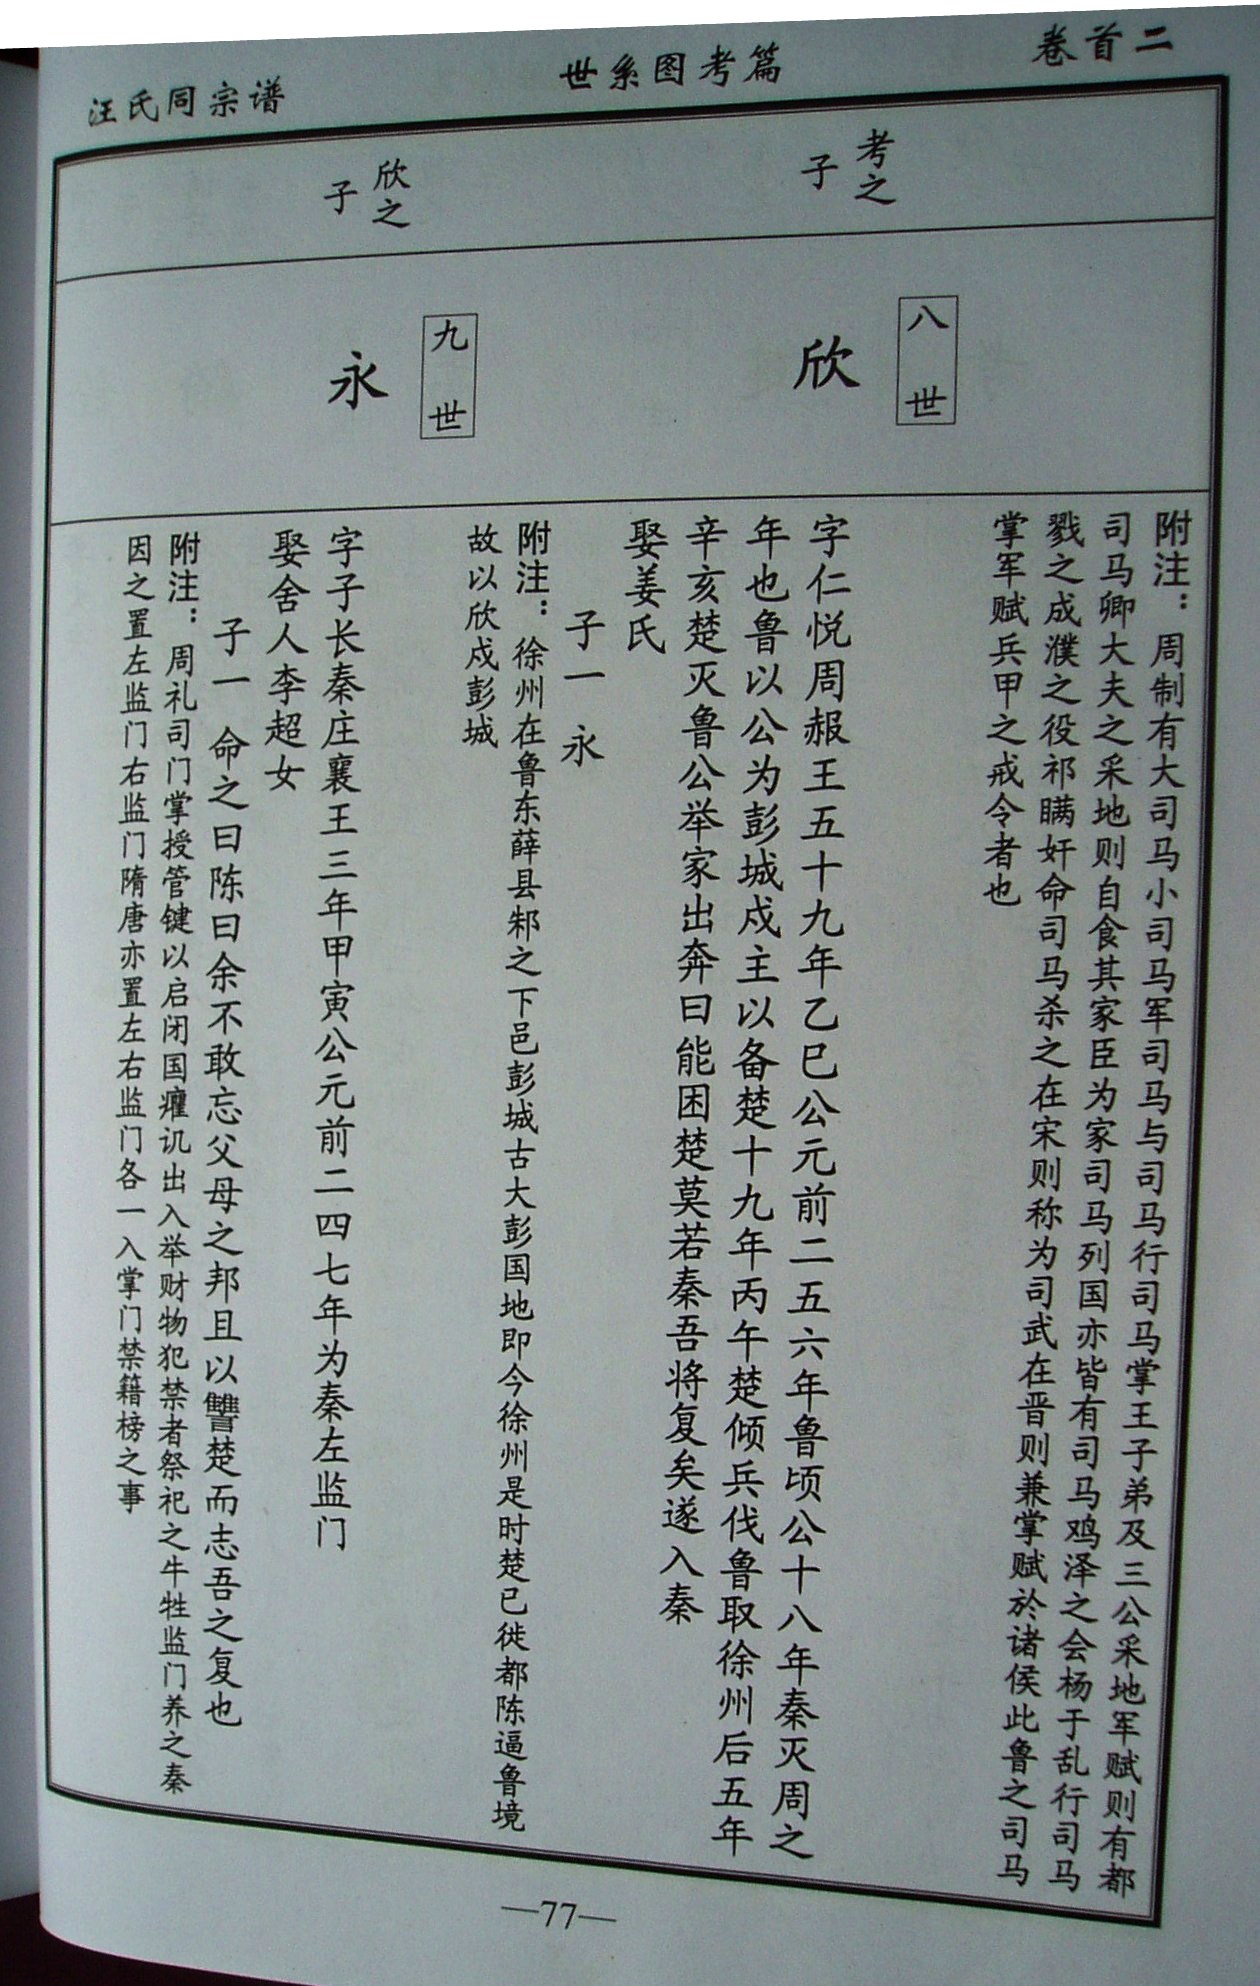 卷首二
世系图考篇
汪氏同宗谱
考之
子
八世
欣
附注：周制有大司马小司马军司马与司马行司马掌王子弟及三公采地军赋则有都
司马卿大夫之采地则自食其家臣为家司马列国亦皆有司马鸡泽之会杨于乱行司马
戮之成濮之役祁瞒奸命司马杀之在宋则称为司武在晋则兼掌赋於诸侯此鲁之司马
掌军赋兵甲之戒令者也
字仁悦周赧王五十九年乙巳公元前二五六年鲁顷公十八年秦灭周之
年也鲁以公为彭城戍主以备楚十九年丙午楚倾兵伐鲁取徐州后五年
辛亥楚灭鲁公举家出奔曰能困楚莫若秦吾将复矣遂入秦
娶姜氏
子一　永
附注：徐州在鲁东薛县邾之下邑彭城古大彭国地即今徐州是时楚已徙都陈逼鲁境
故以欣戍彭城
欣之
子
九世
永
字子长秦庄襄王三年甲寅公元前二四七年为秦左监门
娶舍人李超女
子一　命之曰陈曰余不敢忘父母之邦且以讐楚而志吾之复也
附注：周礼司门掌授管键以启闭国癯讥出入举财物犯禁者祭祀之牛牲监门养之秦
因之置左监门右监门隋唐亦置左右监门各一入掌门禁籍榜之事
—77—